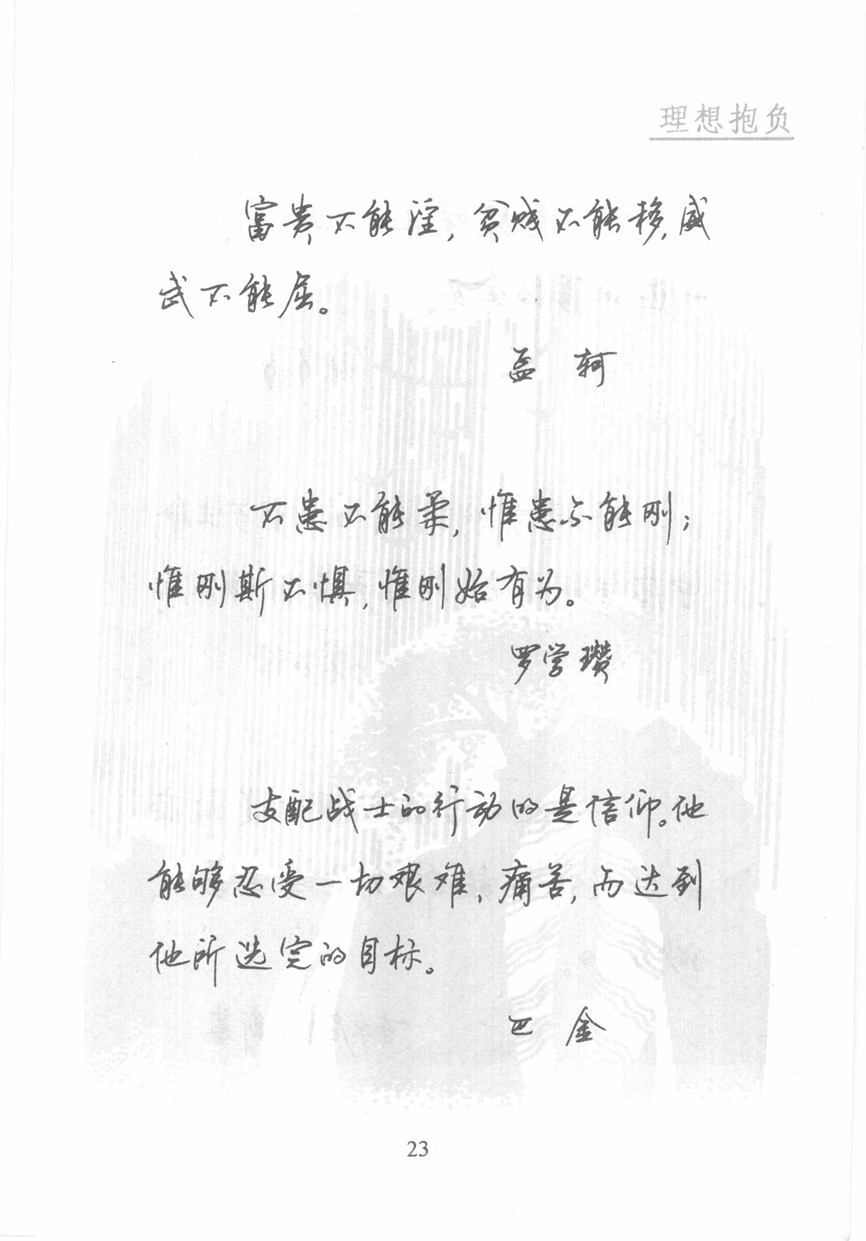 理想抱负
富贵不能淫，贫贱不能移，威
武不能屈。
孟 轲
不患不能柔，惟患不能刚；
惟刚斯不惧，惟刚始有为。
罗学瓒
支配战士的行动的是信仰。他
能够忍受一切艰难、痛苦，而达到
他所选定的目标。
巴 金
23